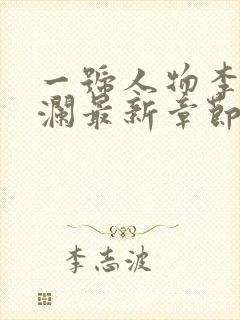 一號人物李
瀾最新章節
李志波